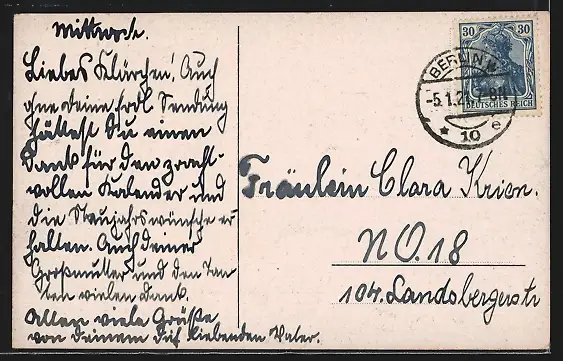 Mittwoch.
Liebes Klärchen! Auch
ohne deine frdl. Sendung
hättest Du einen
Dank für den pracht-
vollen Kalender und
die Neujahrswünsche er-
halten. Auch deiner
Großmutter und den Tan-
ten vielen Dank.
Allen viele Grüße
von deinem dich liebenden Vater.
30 30
DEUTSCHES REICH
BERLIN N
-5.1.21. 7-8 N
* 10 e
Fräulein Clara Krien.
NO. 18
104. Landsbergerstr